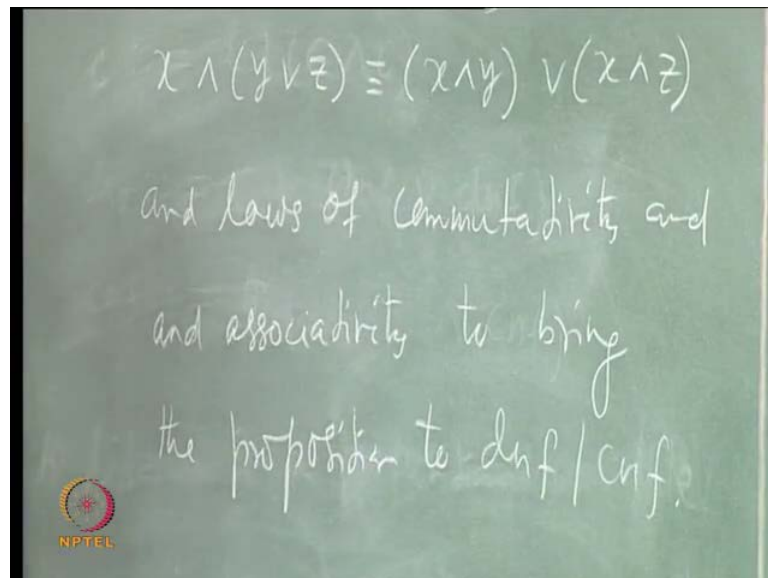 x ∧ (y ∨ z) ≡ (x ∧ y) ∨ (x ∧ z)
and laws of commutativity and
and associativity to bring
the proposition to dnf / cnf.
NPTEL